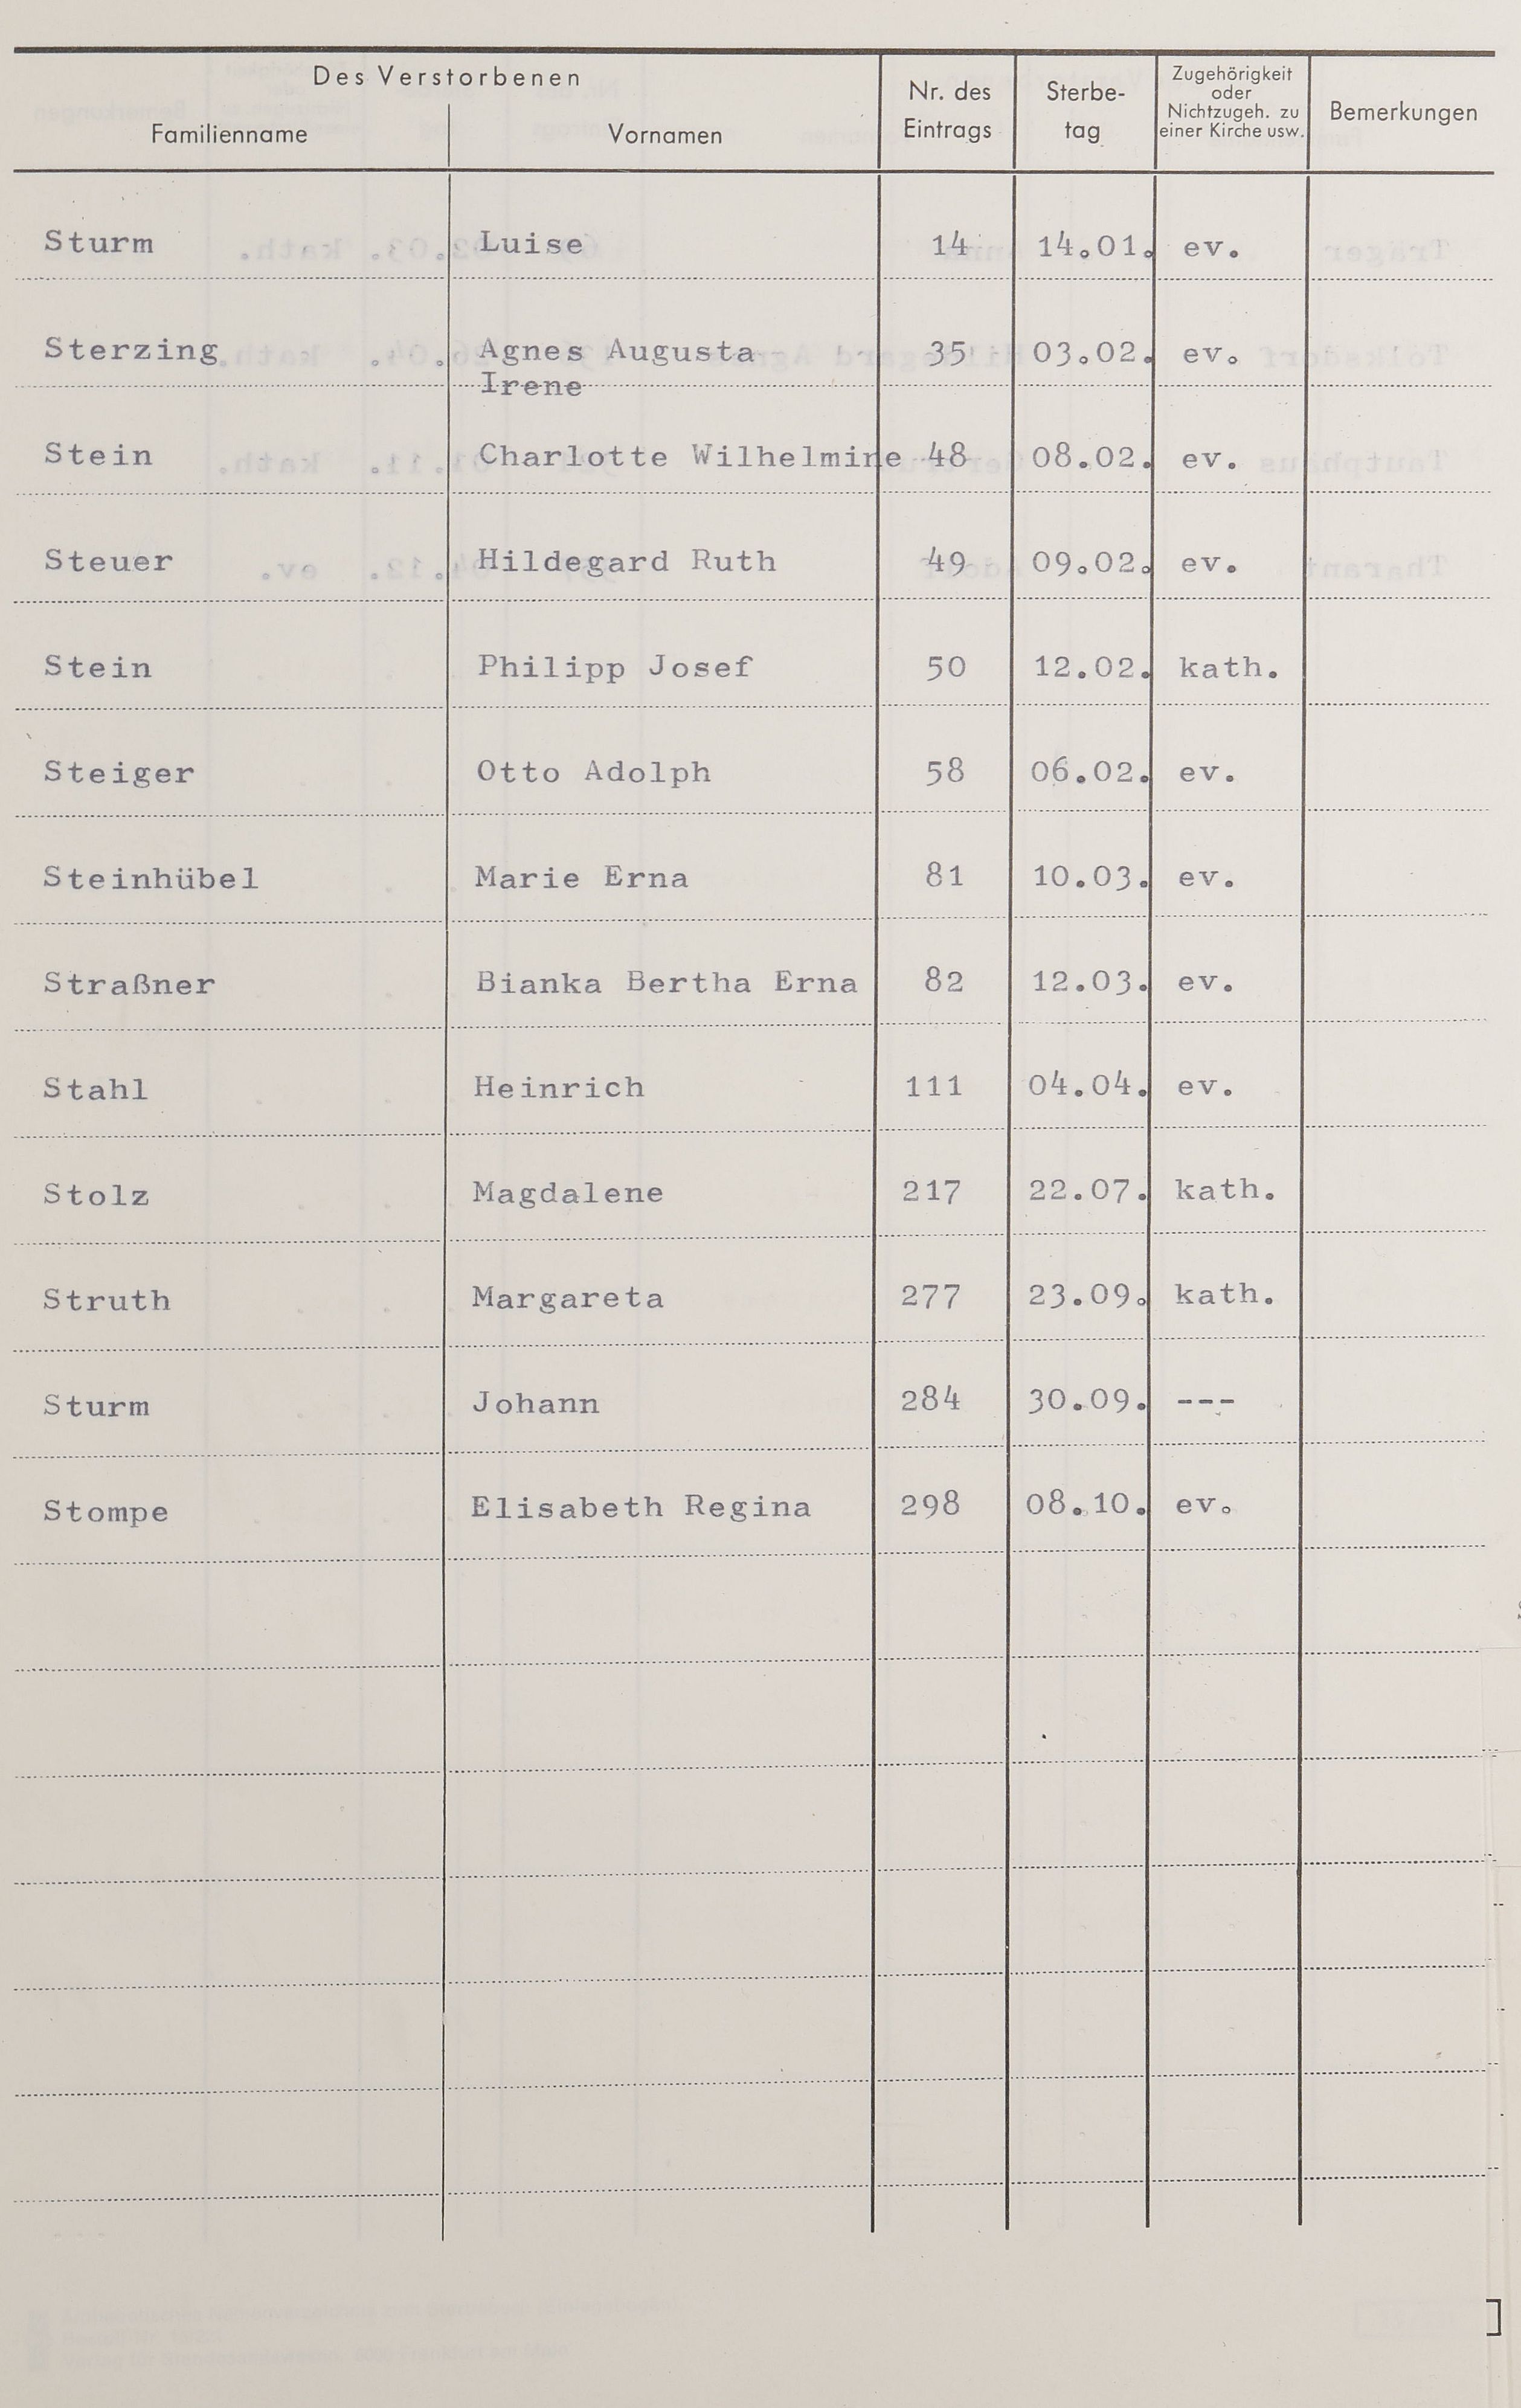 Des Verstorbenen
Familienname Vornamen Nr. des Eintrags Sterbe-tag Zugehörigkeit oder Nichtzugeh. zu einer Kirche usw. Bemerkungen
Sturm Luise 14 14.01. ev.
Sterzing Agnes Augusta 35 03.02. ev.
Irene
Stein Charlotte Wilhelmine 48 08.02. ev.
Steuer Hildegard Ruth 49 09.02. ev.
Stein Philipp Josef 50 12.02. kath.
Steiger Otto Adolph 58 06.02. ev.
Steinhübel Marie Erna 81 10.03. ev.
Straßner Bianka Bertha Erna 82 12.03. ev.
Stahl Heinrich 111 04.04. ev.
Stolz Magdalene 217 22.07. kath.
Struth Margareta 277 23.09. kath.
Sturm Johann 284 30.09. ---
Stompe Elisabeth Regina 298 08.10. ev.